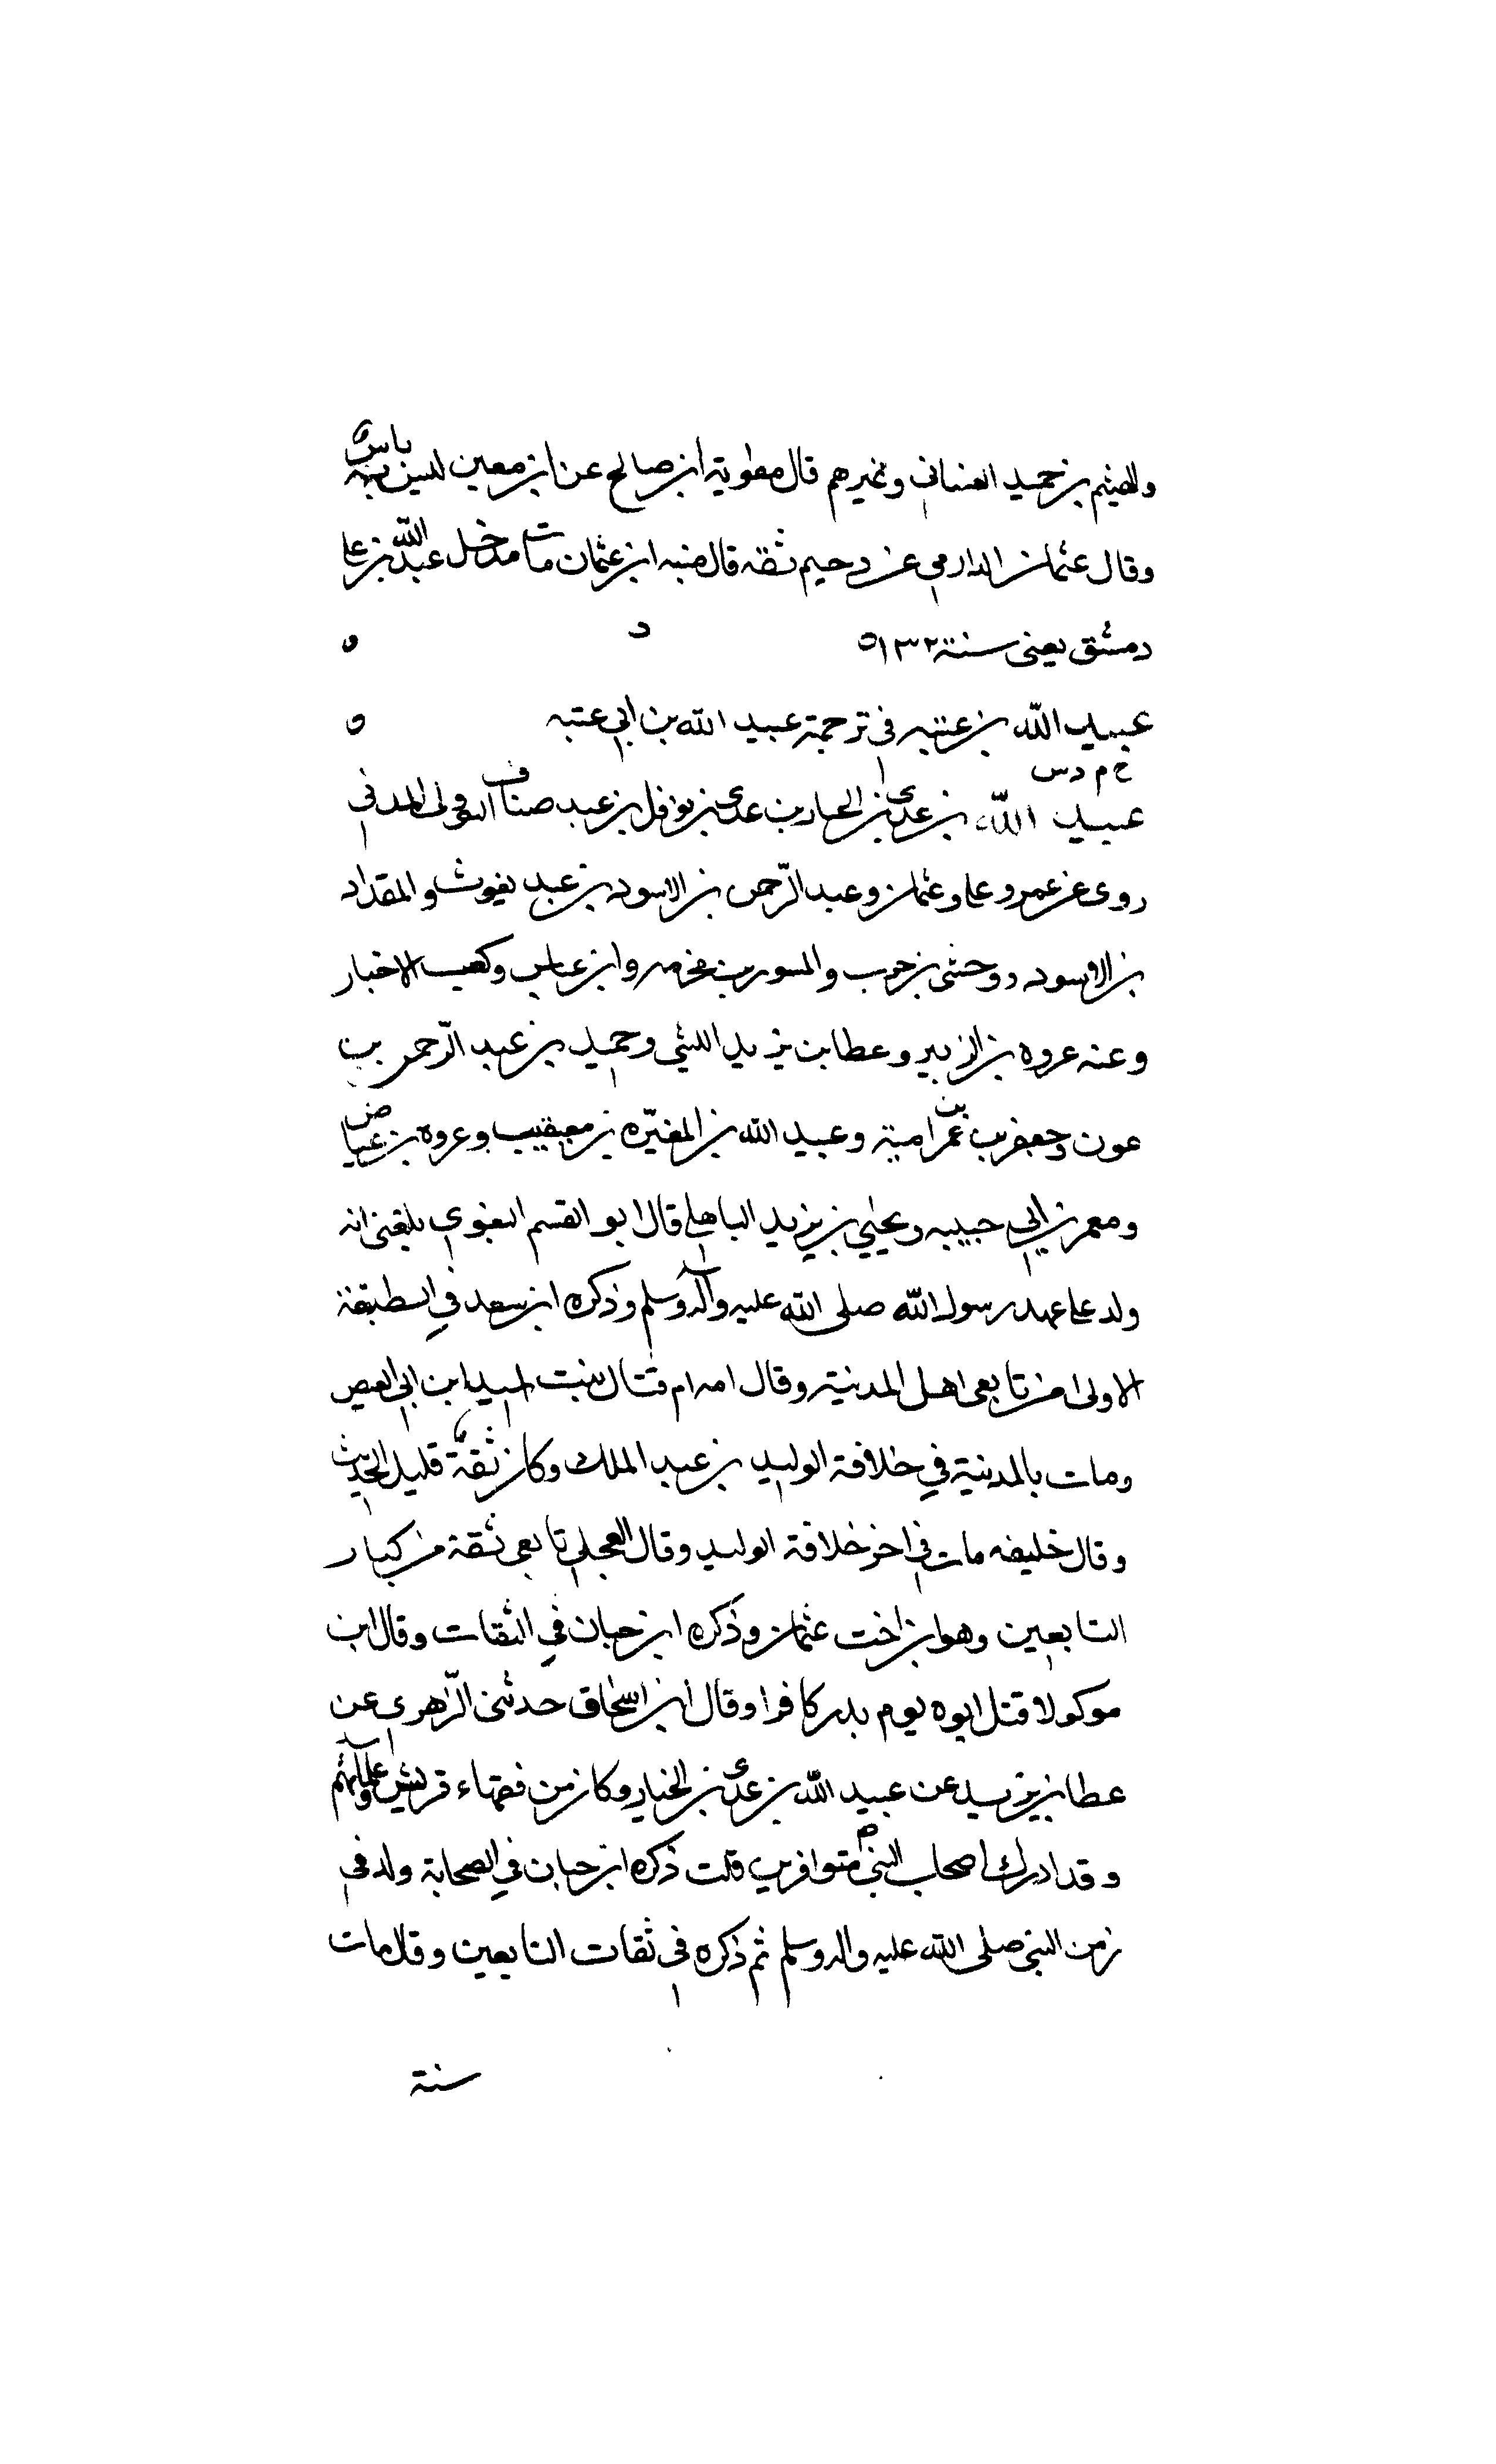 والهيثم بن حميد الغسانى وغيرهم قال معوية ابن صالح عن ابن معين ليس به باس
وقال عثمان الدارمي عن دحيم ثقه قال منبه ابن عثمان مات مدخل عبد الله بن على
دمشق يعنى سنة ١٣٢ ه د ه
عبيد الله بن عتبه فى ترجمة عبيد الله بن ابى عتبه ه
خ م د س
عبيد الله بن عدى بن الخيار بن عدى بن نوافل بن عبد مناف النوفلى المدنى
روى عن عمر و على وعثمان وعبد الرّحمن بن الاسود بن عبد يغوث والمقداد
بن الاسود ووحشى بن حرب والمسور بن مخرمه وابن عباس وكعب الاخبار
وعنه عروه بن الزبير وعطا بن يزيد الليثى وحميد بن عبد الرّحمن بن
عون وجعفر بن عمر بن امية وعبيد الله بن المغيّره بن معيقيب وعروه بن عياض
ومعمر بن ابى حبيبه ويحيى بن يزيد الباهلى قال ابو القسم البغوى بلغنى انه
ولد على عهد رسول الله صلى الله عليه وآله وسلم وذكره ابن سعد فى الطبقة
الاولى من تابعى اهل المدنية وقال امه ام قتال بنت اسيد ابن ابى العيص
ومات بالمدينة فى خلافة الوليد بن عبد الملك وكان ثقة قليل الحديث
وقال خليفه مات فى اخر خلافة الوليد وقال العجلى تابعى ثقة من كبار
التابعين وهو ابن اخت عثمان وذكره ابن حبان فى الثقات وقال ابن
موكولا قتل ابوه يوم بدر كافرا وقال ابن اسحاق حدثنى الزّهرى عن
عطا بن يزيد عن عبيد الله بن عدى بن الخيار وكان من فقهاء قريش وعلمائهم
وقد ادرك اصحاب النبى ص متوافرين قلت ذكره ابن حبان فى الصحابة ولد فى
زمن النبى صلى الله عليه واله وسلم ثم ذكره فى ثقات التابعين وقال مات
سنة